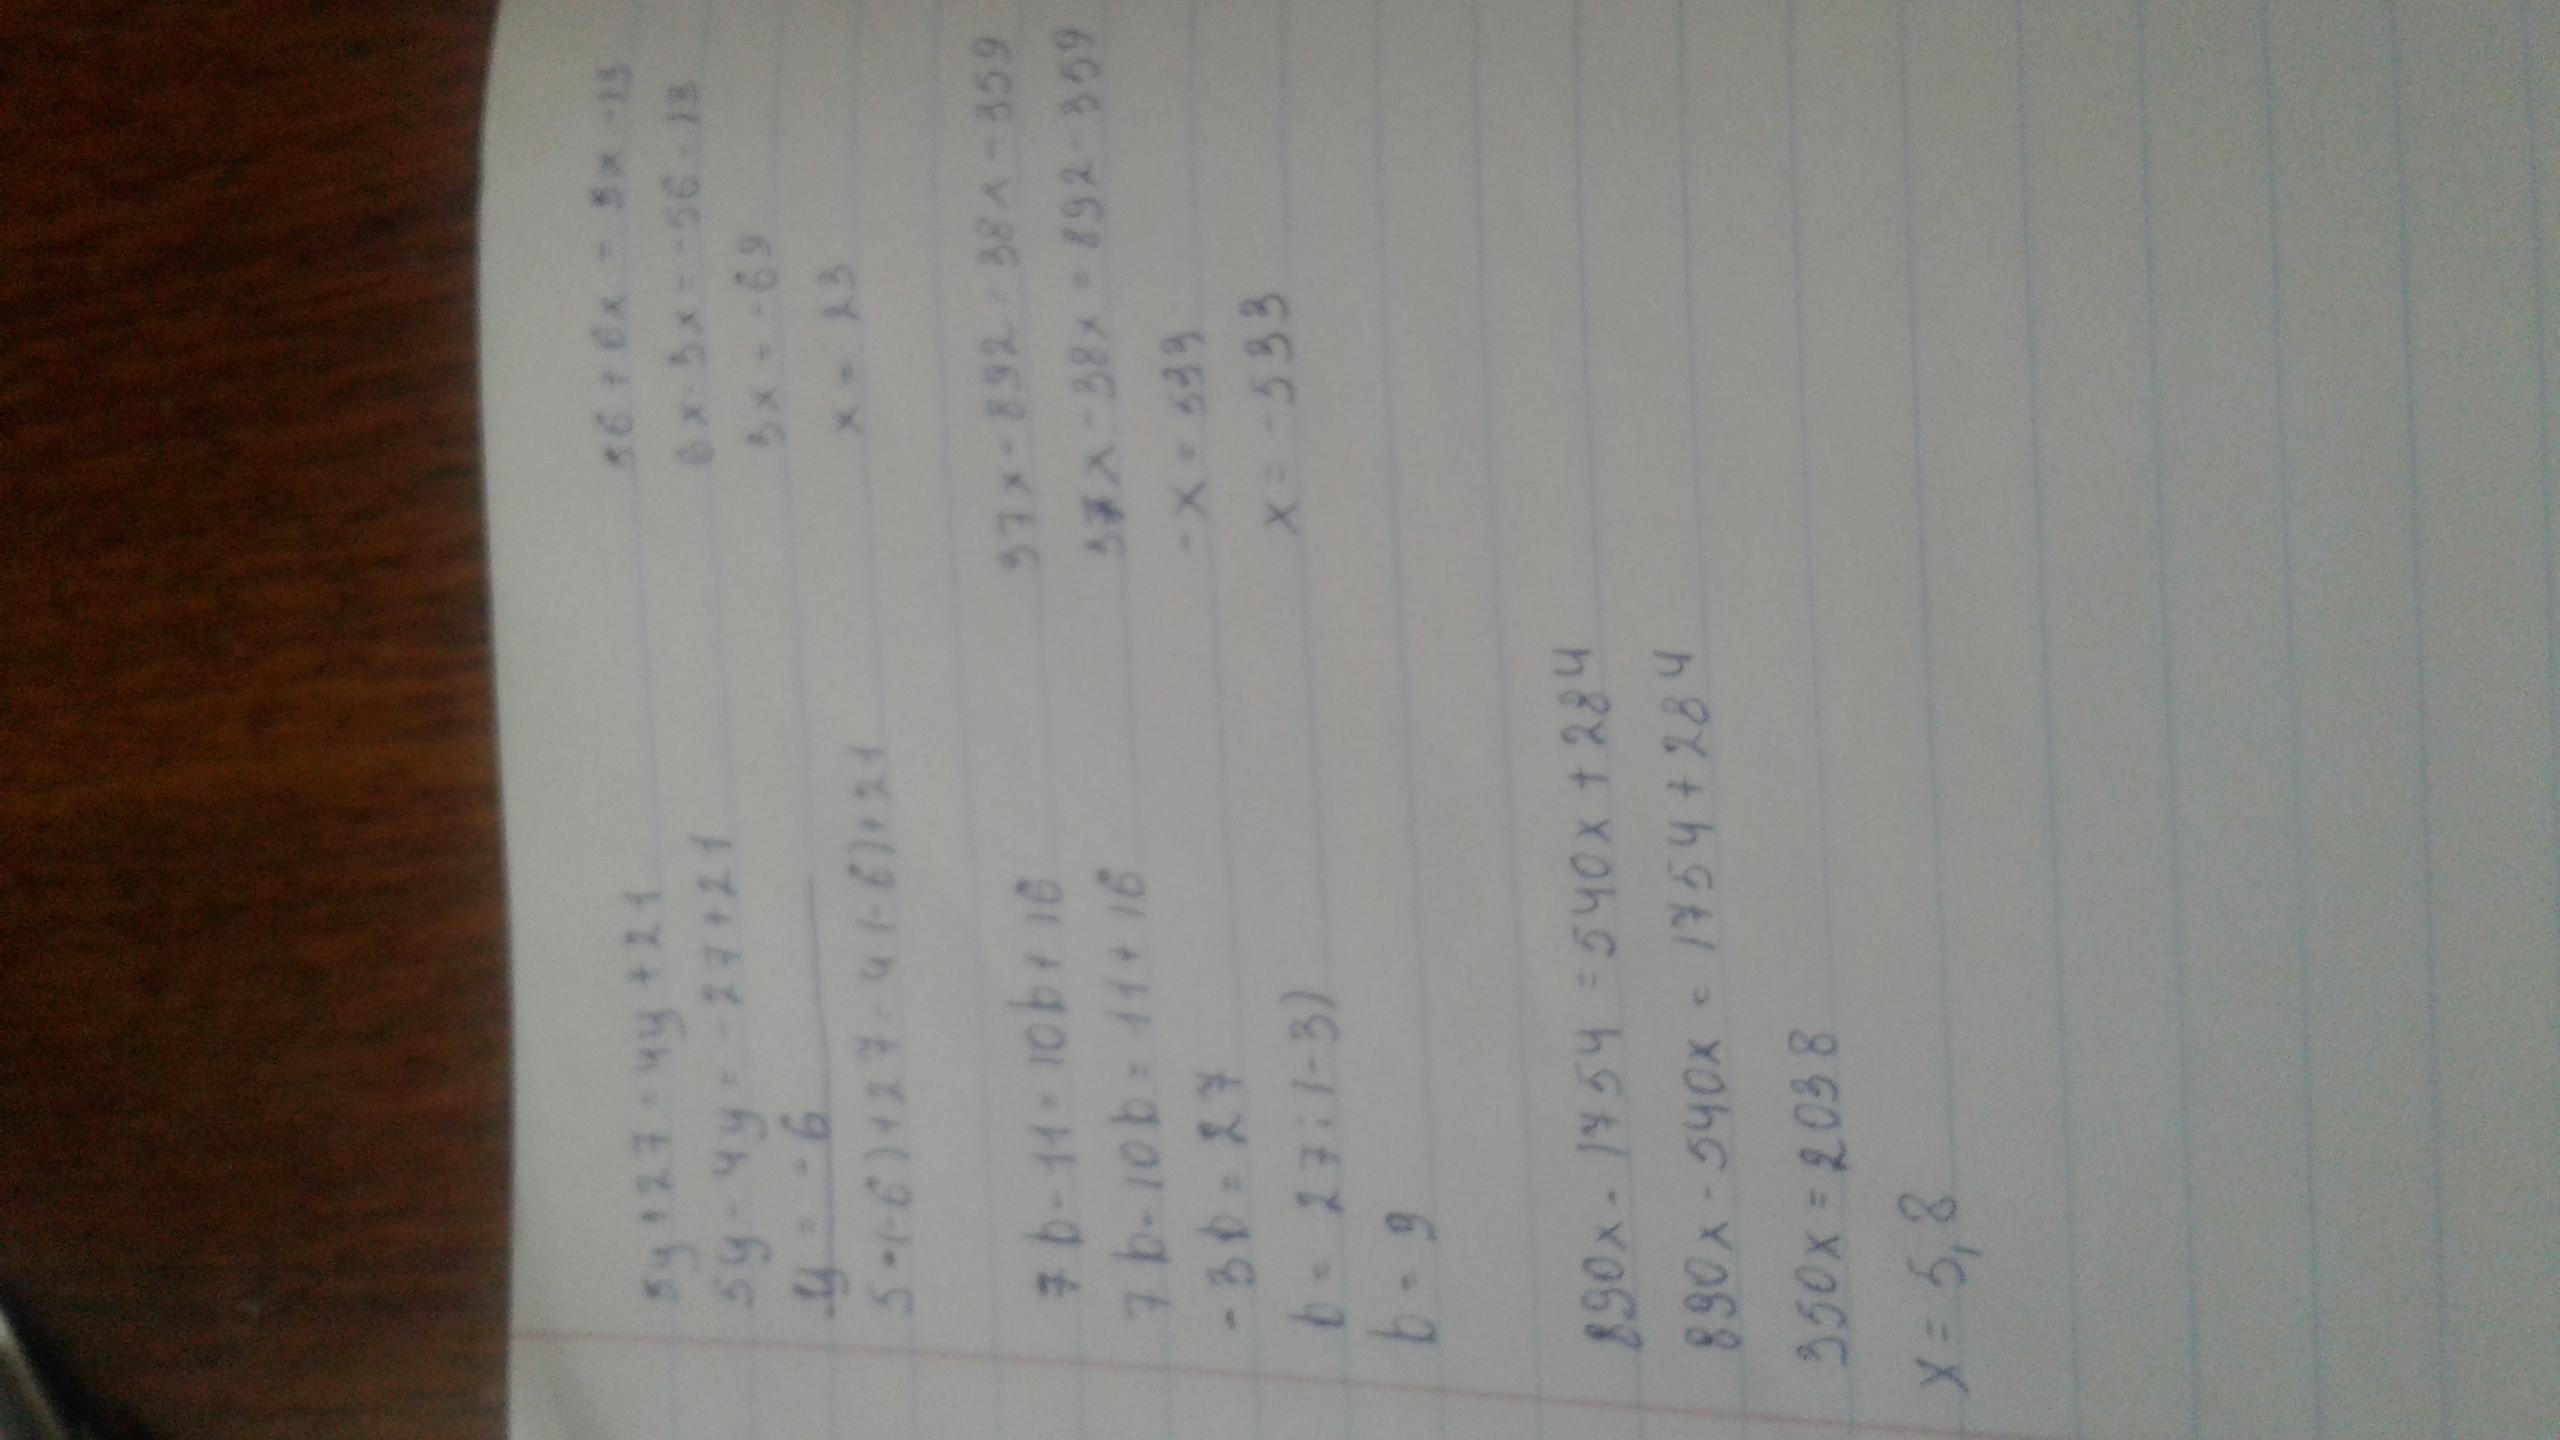 5y+27=4y+21
5y-4y=-27+21
y=-6
5•(-6)+27=4(-6)+21
56+6x=3x-13
6x-3x=-56-13
3x=-69
x=23
7b-11=10b+16
7b-10b=11+16
-3b=27
b=27:(-3)
b=9
37x-892=38x-359
37x-38x=892-359
-x=533
x=-533
890x-1754=540x+284
890x-540x=1754+284
350x=2038
x=5,8